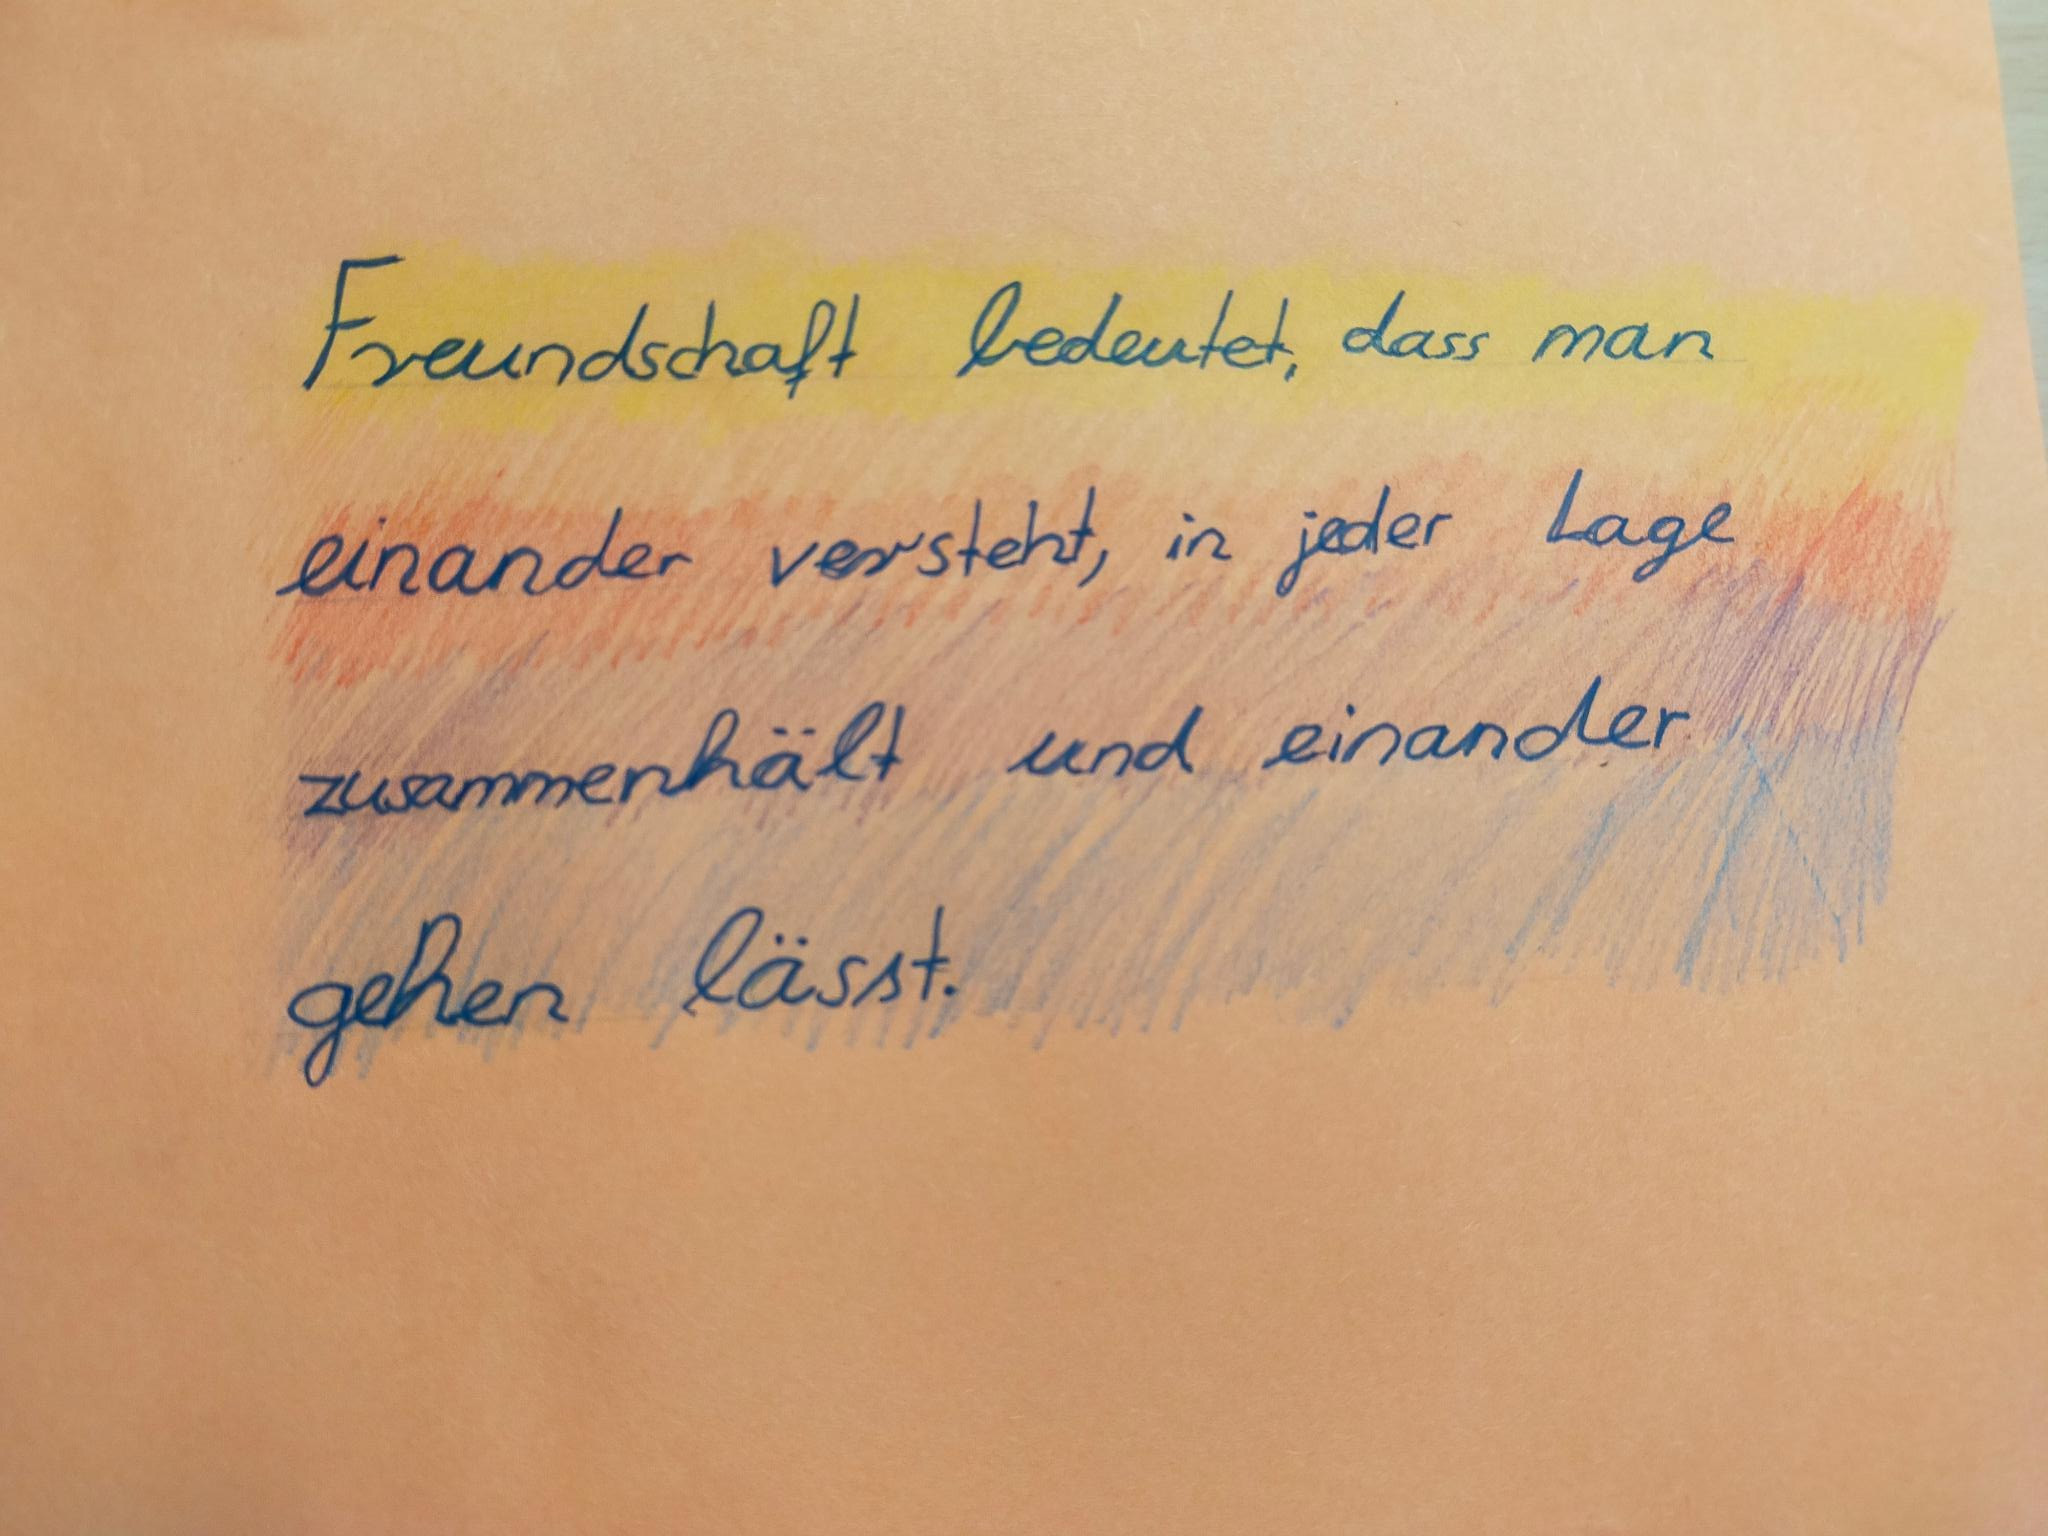 Freundschaft bedeutet, dass man
einander versteht, in jeder Lage
zusammenhält und einander
gehen lässt.